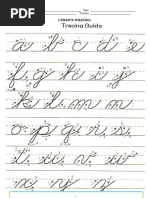 Date
CURSIVE WRITING
Tracing Guide
a b c d e
f g h i j
k l m n
o p q r s
t u v w
x y z